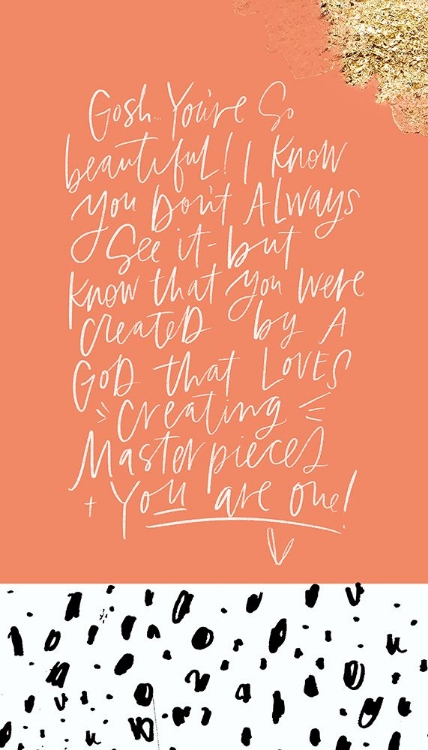 Gosh... You're So
beautiful! I Know
you Don't ALways
See it - but
Know that you were
createD by A
GoD that LovES
creating
Masterpieces
+ You are one!